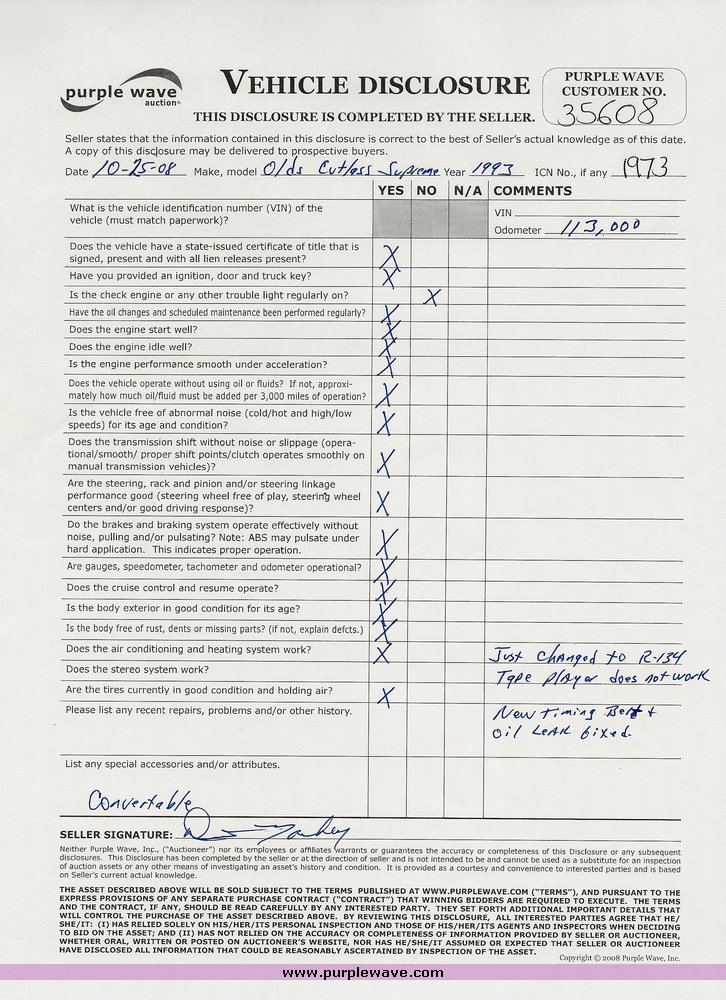 purple wave
auction®
VEHICLE DISCLOSURE
THIS DISCLOSURE IS COMPLETED BY THE SELLER.
PURPLE WAVE
CUSTOMER NO.
35608
Seller states that the information contained in this disclosure is correct to the best of Seller's actual knowledge as of this date.
A copy of this disclosure may be delivered to prospective buyers.
Date 10-25-08 Make, model Olds Cutlass Supreme Year 1993 ICN No., if any 1973
YES NO N/A COMMENTS
What is the vehicle identification number (VIN) of the
vehicle (must match paperwork)?
VIN
Odometer 113,000
Does the vehicle have a state-issued certificate of title that is
signed, present and with all lien releases present? X
Have you provided an ignition, door and truck key? X
Is the check engine or any other trouble light regularly on? X
Have the oil changes and scheduled maintenance been performed regularly? X
Does the engine start well? X
Does the engine idle well? X
Is the engine performance smooth under acceleration? X
Does the vehicle operate without using oil or fluids? If not, approxi-
mately how much oil/fluid must be added per 3,000 miles of operation? X
Is the vehicle free of abnormal noise (cold/hot and high/low
speeds) for its age and condition? X
Does the transmission shift without noise or slippage (opera-
tional/smooth/ proper shift points/clutch operates smoothly on
manual transmission vehicles)? X
Are the steering, rack and pinion and/or steering linkage
performance good (steering wheel free of play, steering wheel
centers and/or good driving response)? X
Do the brakes and braking system operate effectively without
noise, pulling and/or pulsating? Note: ABS may pulsate under
hard application. This indicates proper operation. X
Are gauges, speedometer, tachometer and odometer operational? X
Does the cruise control and resume operate? X
Is the body exterior in good condition for its age? X
Is the body free of rust, dents or missing parts? (if not, explain defcts.) X
Does the air conditioning and heating system work? X Just Changed to R-134
Does the stereo system work? Tape player does not work
Are the tires currently in good condition and holding air? X
Please list any recent repairs, problems and/or other history. New timing Belt +
oil Leak fixed.
List any special accessories and/or attributes.
Convertable
SELLER SIGNATURE:
Neither Purple Wave, Inc., ("Auctioneer") nor its employees or affiliates warrants or guarantees the accuracy or completeness of this Disclosure or any subsequent
disclosures. This Disclosure has been completed by the seller or at the direction of seller and is not intended to be and cannot be used as a substitute for an inspection
of auction assets or any other means of investigating an asset's history and condition. It is provided as a courtesy and convenience to interested parties and is based
on Seller's current actual knowledge.
THE ASSET DESCRIBED ABOVE WILL BE SOLD SUBJECT TO THE TERMS PUBLISHED AT WWW.PURPLEWAVE.COM ("TERMS"), AND PURSUANT TO THE
EXPRESS PROVISIONS OF ANY SEPARATE PURCHASE CONTRACT ("CONTRACT") THAT WINNING BIDDERS ARE REQUIRED TO EXECUTE. THE TERMS
AND THE CONTRACT, IF ANY, SHOULD BE READ CAREFULLY BY ANY INTERESTED PARTY. THEY SET FORTH ADDITIONAL IMPORTANT DETAILS THAT
WILL CONTROL THE PURCHASE OF THE ASSET DESCRIBED ABOVE. BY REVIEWING THIS DISCLOSURE, ALL INTERESTED PARTIES AGREE THAT HE/
SHE/IT: (I) HAS RELIED SOLELY ON HIS/HER/ITS PERSONAL INSPECTION AND THOSE OF HIS/HER/ITS AGENTS AND INSPECTORS WHEN DECIDING
TO BID ON THE ASSET; AND (II) HAS NOT RELIED ON THE ACCURACY OR COMPLETENESS OF INFORMATION PROVIDED BY SELLER OR AUCTIONEER,
WHETHER ORAL, WRITTEN OR POSTED ON AUCTIONEER'S WEBSITE, NOR HAS HE/SHE/IT ASSUMED OR EXPECTED THAT SELLER OR AUCTIONEER
HAVE DISCLOSED ALL INFORMATION THAT COULD BE REASONABLY ASCERTAINED BY INSPECTION OF THE ASSET.
Copyright © 2008 Purple Wave, Inc.
www.purplewave.com